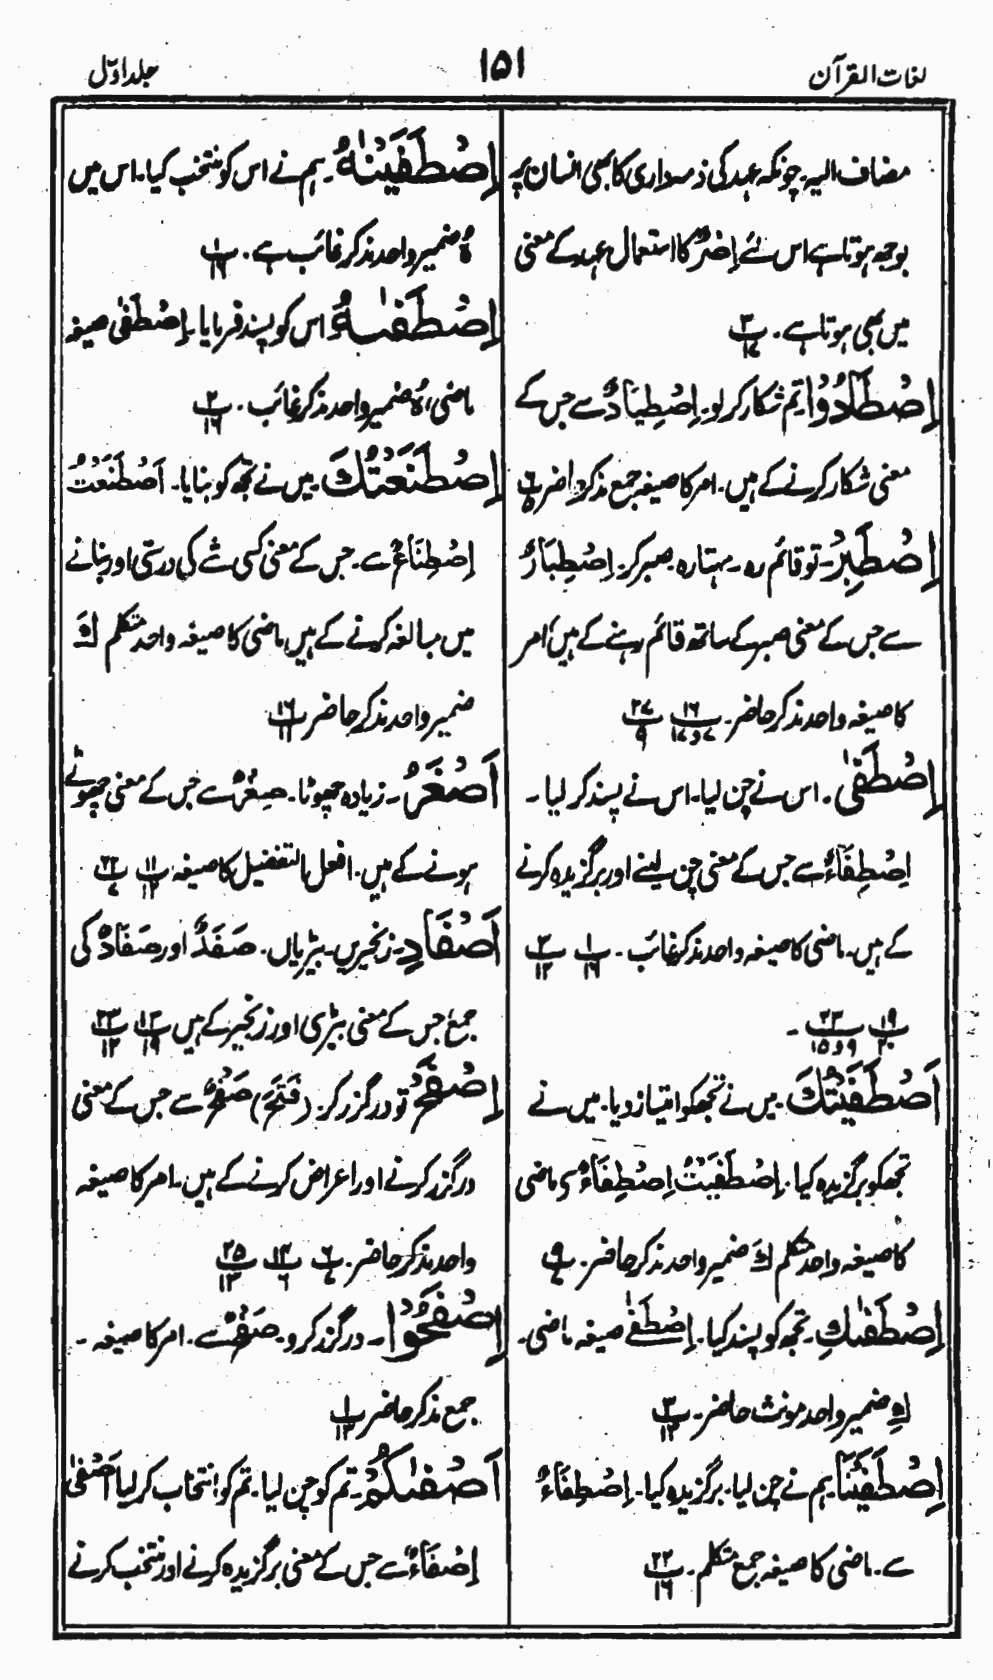 لغات القرآن
۱۵۱
جلد اوّل
مضاف الیہ۔ چونکہ عہد کی ذمہ داری کا بھی انسان پر
بوجھ ہوتا ہے اس لئے اِصْرٌ کا استعمال عہد کے معنی
میں بھی ہوتا ہے۔ ۳/۱۷
اِصْطَادُوْا تم شکار کر لو۔ اِصْطِیَادٌ سے جس کے
معنی شکار کرنے کے ہیں۔ امر کا صیغہ جمع مذکر حاضر ۶/۵
اِصْطَبِرْ۔ تو قائم رہ۔ سہتا رہ۔ صبر کر۔ اِصْطِبَارٌ
سے جس کے معنی صبر کے ساتھ قائم رہنے کے ہیں امر
کا صیغہ واحد مذکر حاضر۔ ۱۶/۷و۱۷ ۲۷/۹
اِصْطَفٰی۔ اس نے چن لیا۔ اس نے پسند کر لیا۔
اِصْطِفَاءٌ سے جس کے معنی چن لینے اور برگزیدہ کرنے
کے ہیں۔ ماضی کا صیغہ واحد مذکر غائب۔ ۱/۱۶ ۳/۱۲
۱۹/۲۰ ۲۳/۹و۱۵۔
اَصْطَفَیْتُكَ۔ میں نے تجھ کو امتیاز دیا۔ میں نے
تجھ کو برگزیدہ کیا۔ اِصْطَفَیْتُ اِصْطِفَاءٌ سے ماضی
کا صیغہ واحد متکلم كَ ضمیر واحد مذکر حاضر۔ ۹/۷
اِصْطَفٰىكِ۔ تجھ کو پسند کیا۔ اِصْطَفٰی صیغہ ماضی۔
كِ ضمیر واحد مونث حاضر۔ ۳/۱۲
اِصْطَفَیْنَا۔ ہم نے چن لیا۔ برگزیدہ کیا۔ اِصْطِفَاءٌ
سے۔ ماضی کا صیغہ جمع متکلم۔ ۲۲/۱۶
اِصْطَفَیْنٰهُ۔ ہم نے اس کو منتخب کیا۔ اس میں
هُ ضمیر واحد مذکر غائب ہے۔ ۱/۱۶
اِصْطَفٰىهُ اس کو پسند فرمایا۔ اِصْطَفٰی صیغہ
ماضی، هُ ضمیر واحد مذکر غائب۔ ۲/۱۶
اِصْطَنَعْتُكَ۔ میں نے تجھ کو بنایا۔ اَصْطَنَعْتُ
اِصْطِنَاعٌ سے۔ جس کے معنی کسی شے کی درستی اور بنانے
میں مبالغہ کرنے کے ہیں ماضی کا صیغہ واحد متکلم كَ
ضمیر واحد مذکر حاضر ۱۶/۱۱
اَصْغَرُ۔ زیادہ چھوٹا۔ صِغَرٌ سے جس کے معنی چھوٹے
ہونے کے ہیں۔ افعل التفضیل کا صیغہ ۱۱/۱۲ ۲۲/۷
اَصْفَادِ۔ زنجیریں۔ بیڑیاں۔ صَفَدٌ اور صَفَادٌ کی
جمع جس کے معنی بیڑی اور زنجیر کے ہیں ۱۳/۱۹ ۲۳/۱۲
اِصْفَحْ تو درگزر کر۔ (فَتَحَ) صَفْحٌ سے جس کے معنی
درگزر کرنے اور اعراض کرنے کے ہیں۔ امر کا صیغہ
واحد مذکر حاضر۔ ۶/۷ ۱۴/۶ ۲۵/۱۳
اِصْفَحُوْا۔ درگزر کرو۔ صَفْحٌ سے۔ امر کا صیغہ۔
جمع مذکر حاضر ۱/۱۳
اَصْفٰىكُمْ۔ تم کو چن لیا۔ تم کو انتخاب کر لیا اَصْفٰی
اِصْفَاءٌ سے جس کے معنی برگزیدہ کرنے اور منتخب کرنے